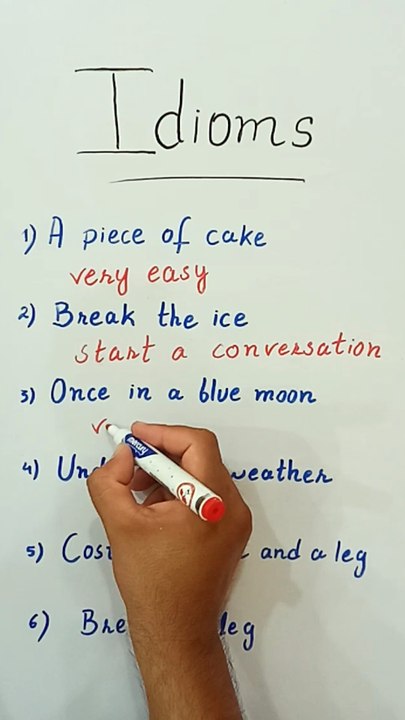 Idioms
1) A piece of cake
very easy
2) Break the ice
start a conversation
3) Once in a blue moon
4) weather
5) and a leg
6)